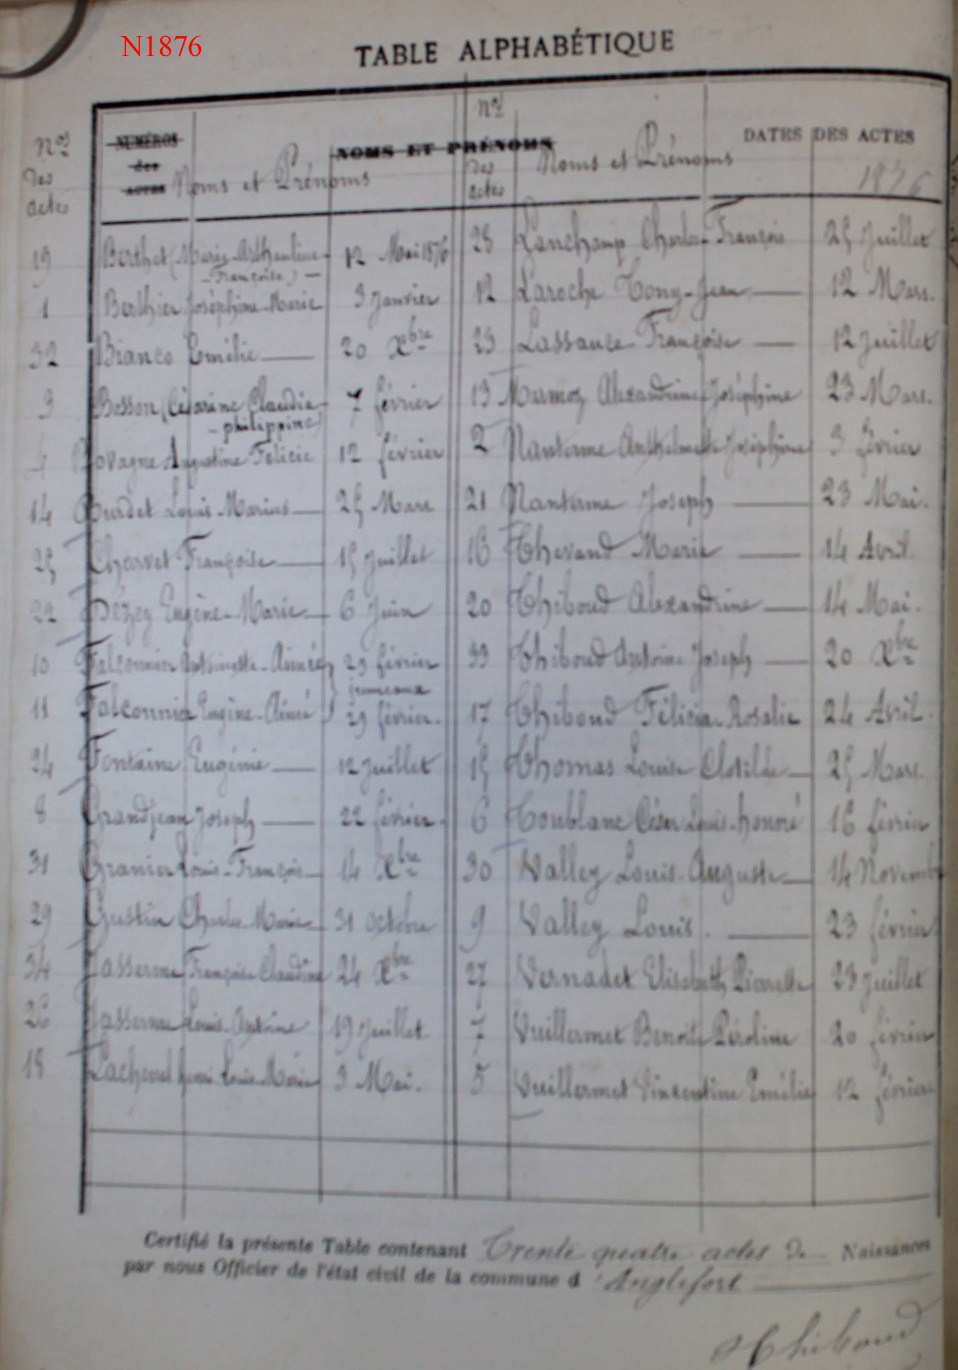 N1876
TABLE ALPHABÉTIQUE
Nos des actes
NUMÉROS des ACTES
NOMS ET PRÉNOMS
Noms et Prénoms
Nos des actes
Noms et Prénoms
DATES DES ACTES
1876
19 Berthet (Marie Anthemine Françoise) — 12 Mai 1876
1 Berthier Joséphine Marie 3 Janvier
32 Bianco Emélie — 20 Xbre
3 Besson (Césarine Claudia philippine) 7 février
4 Bovagne Augustine Félicie 12 février
14 Burdet Louis Marius — 25 Mars
25 Charvet Françoise — 15 Juillet
22 Dézey Eugène Marie — 6 Juin
10 Falconnier Antoinette Aimée 29 février
jumeaux
11 Falconnier Eugène Aimé 29 février.
24 Fontaine Eugénie — 12 Juillet
8 Grandjean Joseph — 22 février.
31 Granier Louis François — 14 Xbre
29 Gustin Charles Marie — 31 Octobre
34 Jasserme Françoise Claudine 24 Xbre
26 Jasserme Louis Antoine 19 Juillet
18 Lacheval Louis Marie 3 Mai.
28 Lanchamp Charles François 25 Juillet
12 Laroche Tony Jean — 12 Mars.
23 Lassauce Françoise — 12 Juillet
13 Mermoz Alexandrine Joséphine 23 Mars.
2 Nanterme Anthelmette Joséphine 3 février
21 Nanterme Joseph — 23 Mai.
16 Thevand Marie — 14 Avril
20 Thiboud Alexandrine — 14 Mai.
33 Thiboud Antoine Joseph — 20 Xbre
17 Thiboud Félicie Rosalie 24 Avril.
15 Thomas Louise Clotilde — 25 Mars.
6 Toublanc César Louis honoré 16 février
30 Valley Louis Auguste — 14 Novembre
9 Valley Louis. — 23 février
27 Vernadet Elisabeth Pierrette 23 Juillet
7 Vuillermet Benoite Péroline 20 février
5 Vuillermet Vincentine Emélie 12 février
Certifié la présente Table contenant Trente quatre actes de Naissances
par nous Officier de l'état civil de la commune d'Anglefort
Thiboud